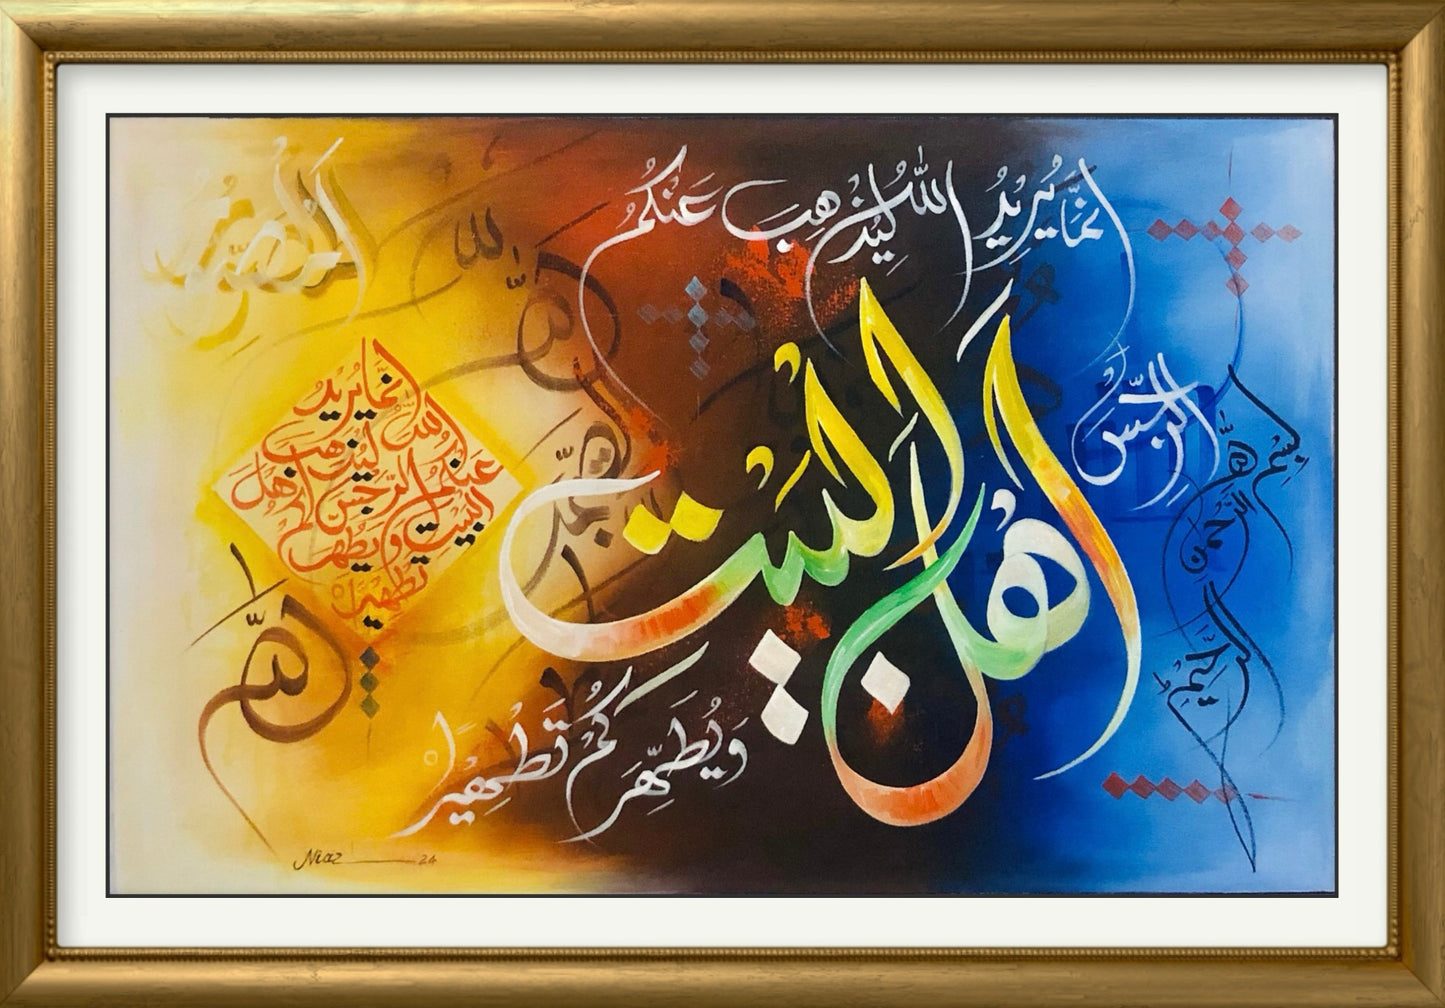 انَّمَا يُرِيْدُ اللّٰهُ لِيُذْهِبَ عَنْكُمُ
الرِّجْسَ
اَهْلَ الْبَيْتِ
وَيُطَهِّرَكُمْ تَطْهِيْرًا
بسم الله الرحمن الرحيم
انما يريد
الله ليذهب
عنكم الرجس اهل
البيت ويطهركم
تطهيرا
الله
الله
محمد
المصور
الله
Niaz 24